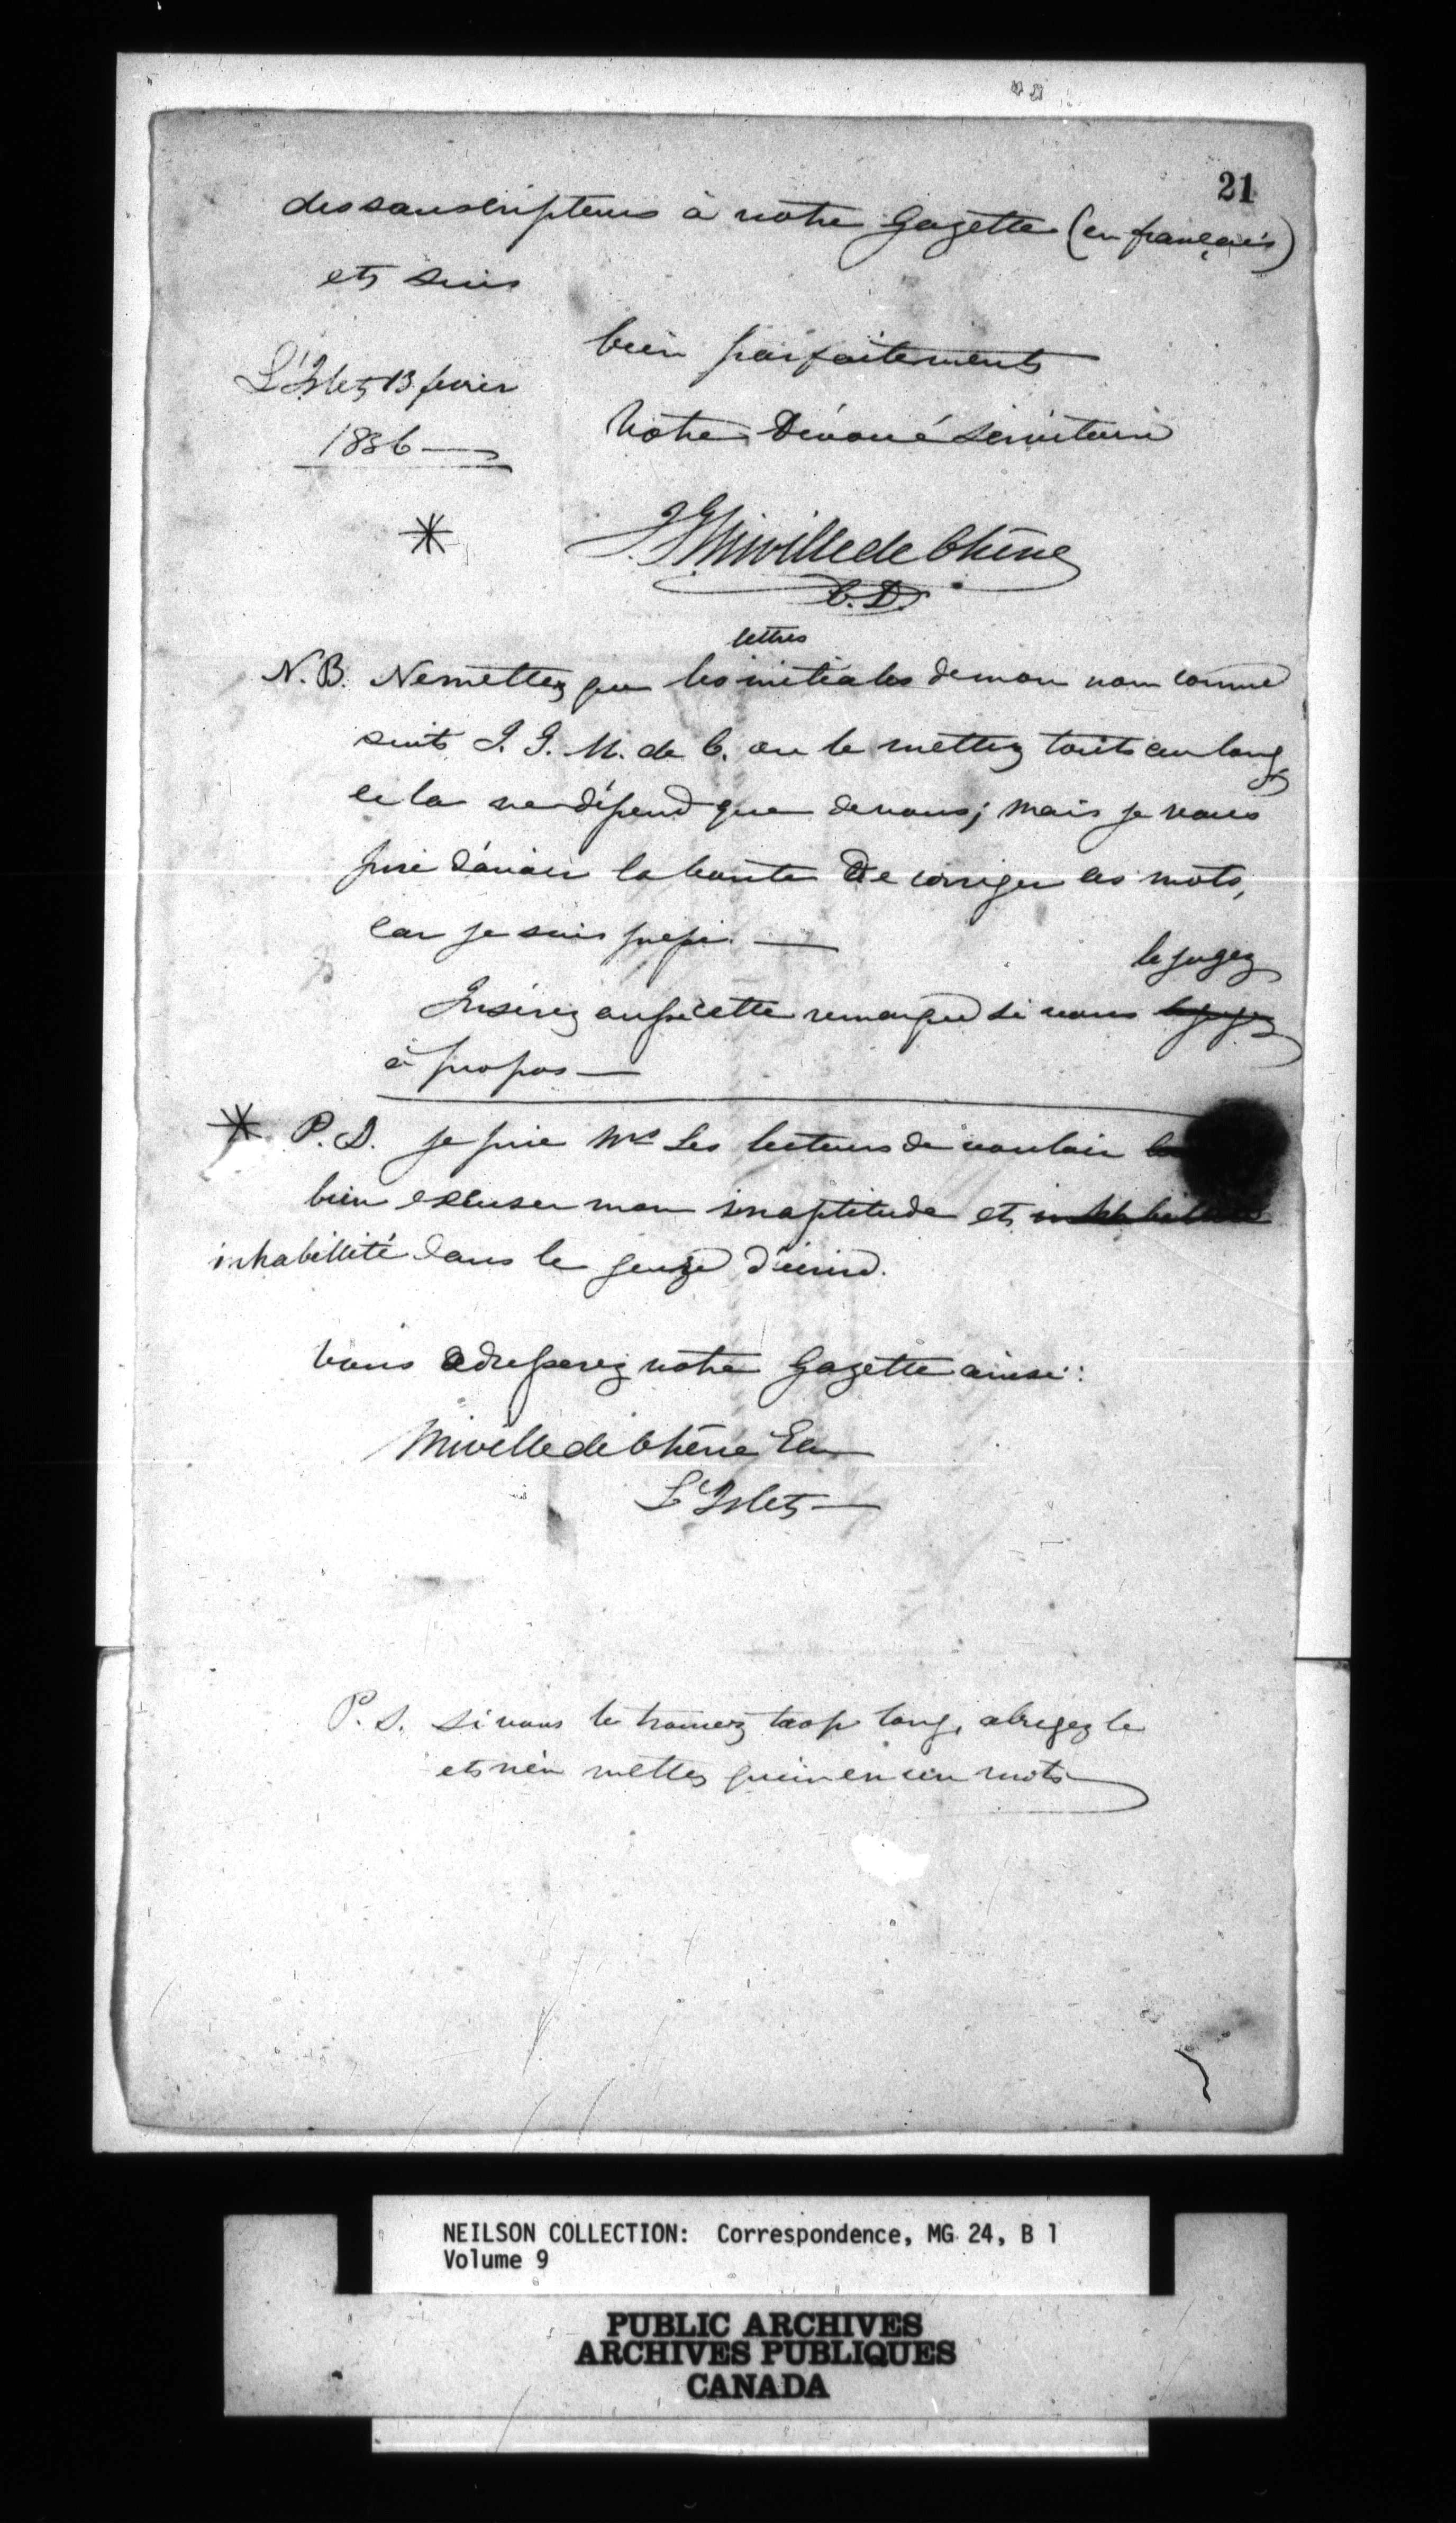 21
des souscripteurs à votre Gazette (en français)
et suis
bien parfaitement
L'Islet 13 fevrier
1836
Votre Dévoué Serviteur
J. G. Miville de Chêne
C. D.
lettres
N. B. Ne mettez que les initiales de mon nom comme
suit J. G. M. de C. ou le mettez tout au long,
cela ne dépend que de vous; mais je vous
prie d'avoir la bonté de corriger les mots,
car je suis pressé.
le jugez
Insérez aussi cette remarque si vous le jugez
à propos
* P. S. je prie Mrs les lecteurs de vouloir
bien excuser mon inaptitude et inhabillité
inhabillité dans le genre d'écrire.
Vous adresserez votre Gazette ainsi:
Miville de Chêne Ecr
L'Islet
P. S. si vous le trouvez trop long, abregez le
et n'en mettez qu'un en un mot
NEILSON COLLECTION: Correspondence, MG 24, B 1
Volume 9
PUBLIC ARCHIVES
ARCHIVES PUBLIQUES
CANADA